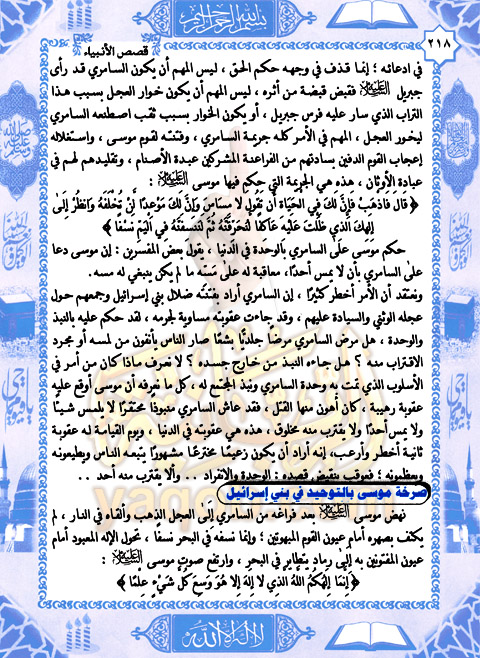 بسم الله الرحمن الرحيم
٢١٨
قصص الأنبياء
في ادعائه ؛ إنما قذف في وجهه حكم الحق ، ليس المهم أن يكون السامري قد رأى
جبريل عليه السلام فقبض قبضة من أثره ، ليس المهم أن يكون خوار العجل بسبب هذا
التراب الذي سار عليه فرس جبريل ، أو يكون الخوار بسبب ثقب اصطنعه السامري
ليخور العجل ، المهم في الأمر كله جريمة السامري ، وفتنته لقوم موسى ، واستغلاله
إعجاب القوم الدفين بسادتهم من الفراعنة المشركين عبدة الأصنام ، وتقليدهم لهم في
عبادة الأوثان ، هذه هي الجريمة التي حكم فيها موسى عليه السلام :
﴿ قَالَ فَاذْهَبْ فَإِنَّ لَكَ فِي الْحَيَاةِ أَن تَقُولَ لَا مِسَاسَ وَإِنَّ لَكَ مَوْعِدًا لَّنْ تُخْلَفَهُ وَانظُرْ إِلَى
إِلَهِكَ الَّذِي ظَلْتَ عَلَيْهِ عَاكِفًا لَّنُحَرِّقَنَّهُ ثُمَّ لَنَنسِفَنَّهُ فِي الْيَمِّ نَسْفًا ﴾
حكم موسى على السامري بالوحدة في الدنيا ، يقول بعض المفسرين : إن موسى دعا
على السامري بأن لا يمس أحدًا، معاقبة له على مسه ما لم يكن ينبغي له مسه .
ونعتقد أن الأمر أخطر كثيرًا ، إن السامري أراد بفتنته ضلال بني إسرائيل وجمعهم حول
عجله الوثني والسيادة عليهم ، وقد جاءت عقوبته مساوية لجرمه ، لقد حكم عليه بالنبذ
والوحدة ، هل مرض السامري مرضًا جلديًّا بشعًا صار الناس يأنفون من لمسه أو مجرد
الاقتراب منه ؟ هل جاءه النبذ من خارج جسده ؟ لا نعرف ماذا كان من أمر في
الأسلوب الذي تمت به وحدة السامري ونبذ المجتمع له ، كل ما نعرفه أن موسى أوقع عليه
عقوبة رهيبة ، كان أهون منها القتل ، فقد عاش السامري منبوذًا محتقرًا لا يلمس شيئًا
ولا يمس أحدًا ولا يقترب منه مخلوق ، هذه هي عقوبته في الدنيا ، ويوم القيامة له عقوبة
ثانية أخطر وأرعب، إنه أراد أن يكون زعيمًا مخترعًا مشهورًا يتبعه الناس ويطيعونه
ويعظمونه ؛ فعوقب بنقيض قصده : الوحدة والانفراد .. وألا يقترب منه أحد ..
صرخة موسى بالتوحيد في بني إسرائيل
نهض موسى عليه السلام بعد فراغه من السامري إلى العجل الذهب وألقاه في النار ، لم
يكتف بصهره أمام عيون القوم المبهوتين ؛ وإنما نسفه في البحر نسفًا ، تحول الإله المعبود أمام
عيون المفتونين به إلى رماد يتطاير في البحر ، وارتفع صوت موسى عليه السلام :
﴿ إِنَّمَا إِلَهُكُمُ اللَّهُ الَّذِي لا إِلَهَ إِلا هُوَ وَسِعَ كُلَّ شَيْءٍ عِلْمًا ﴾
لا إله إلا الله